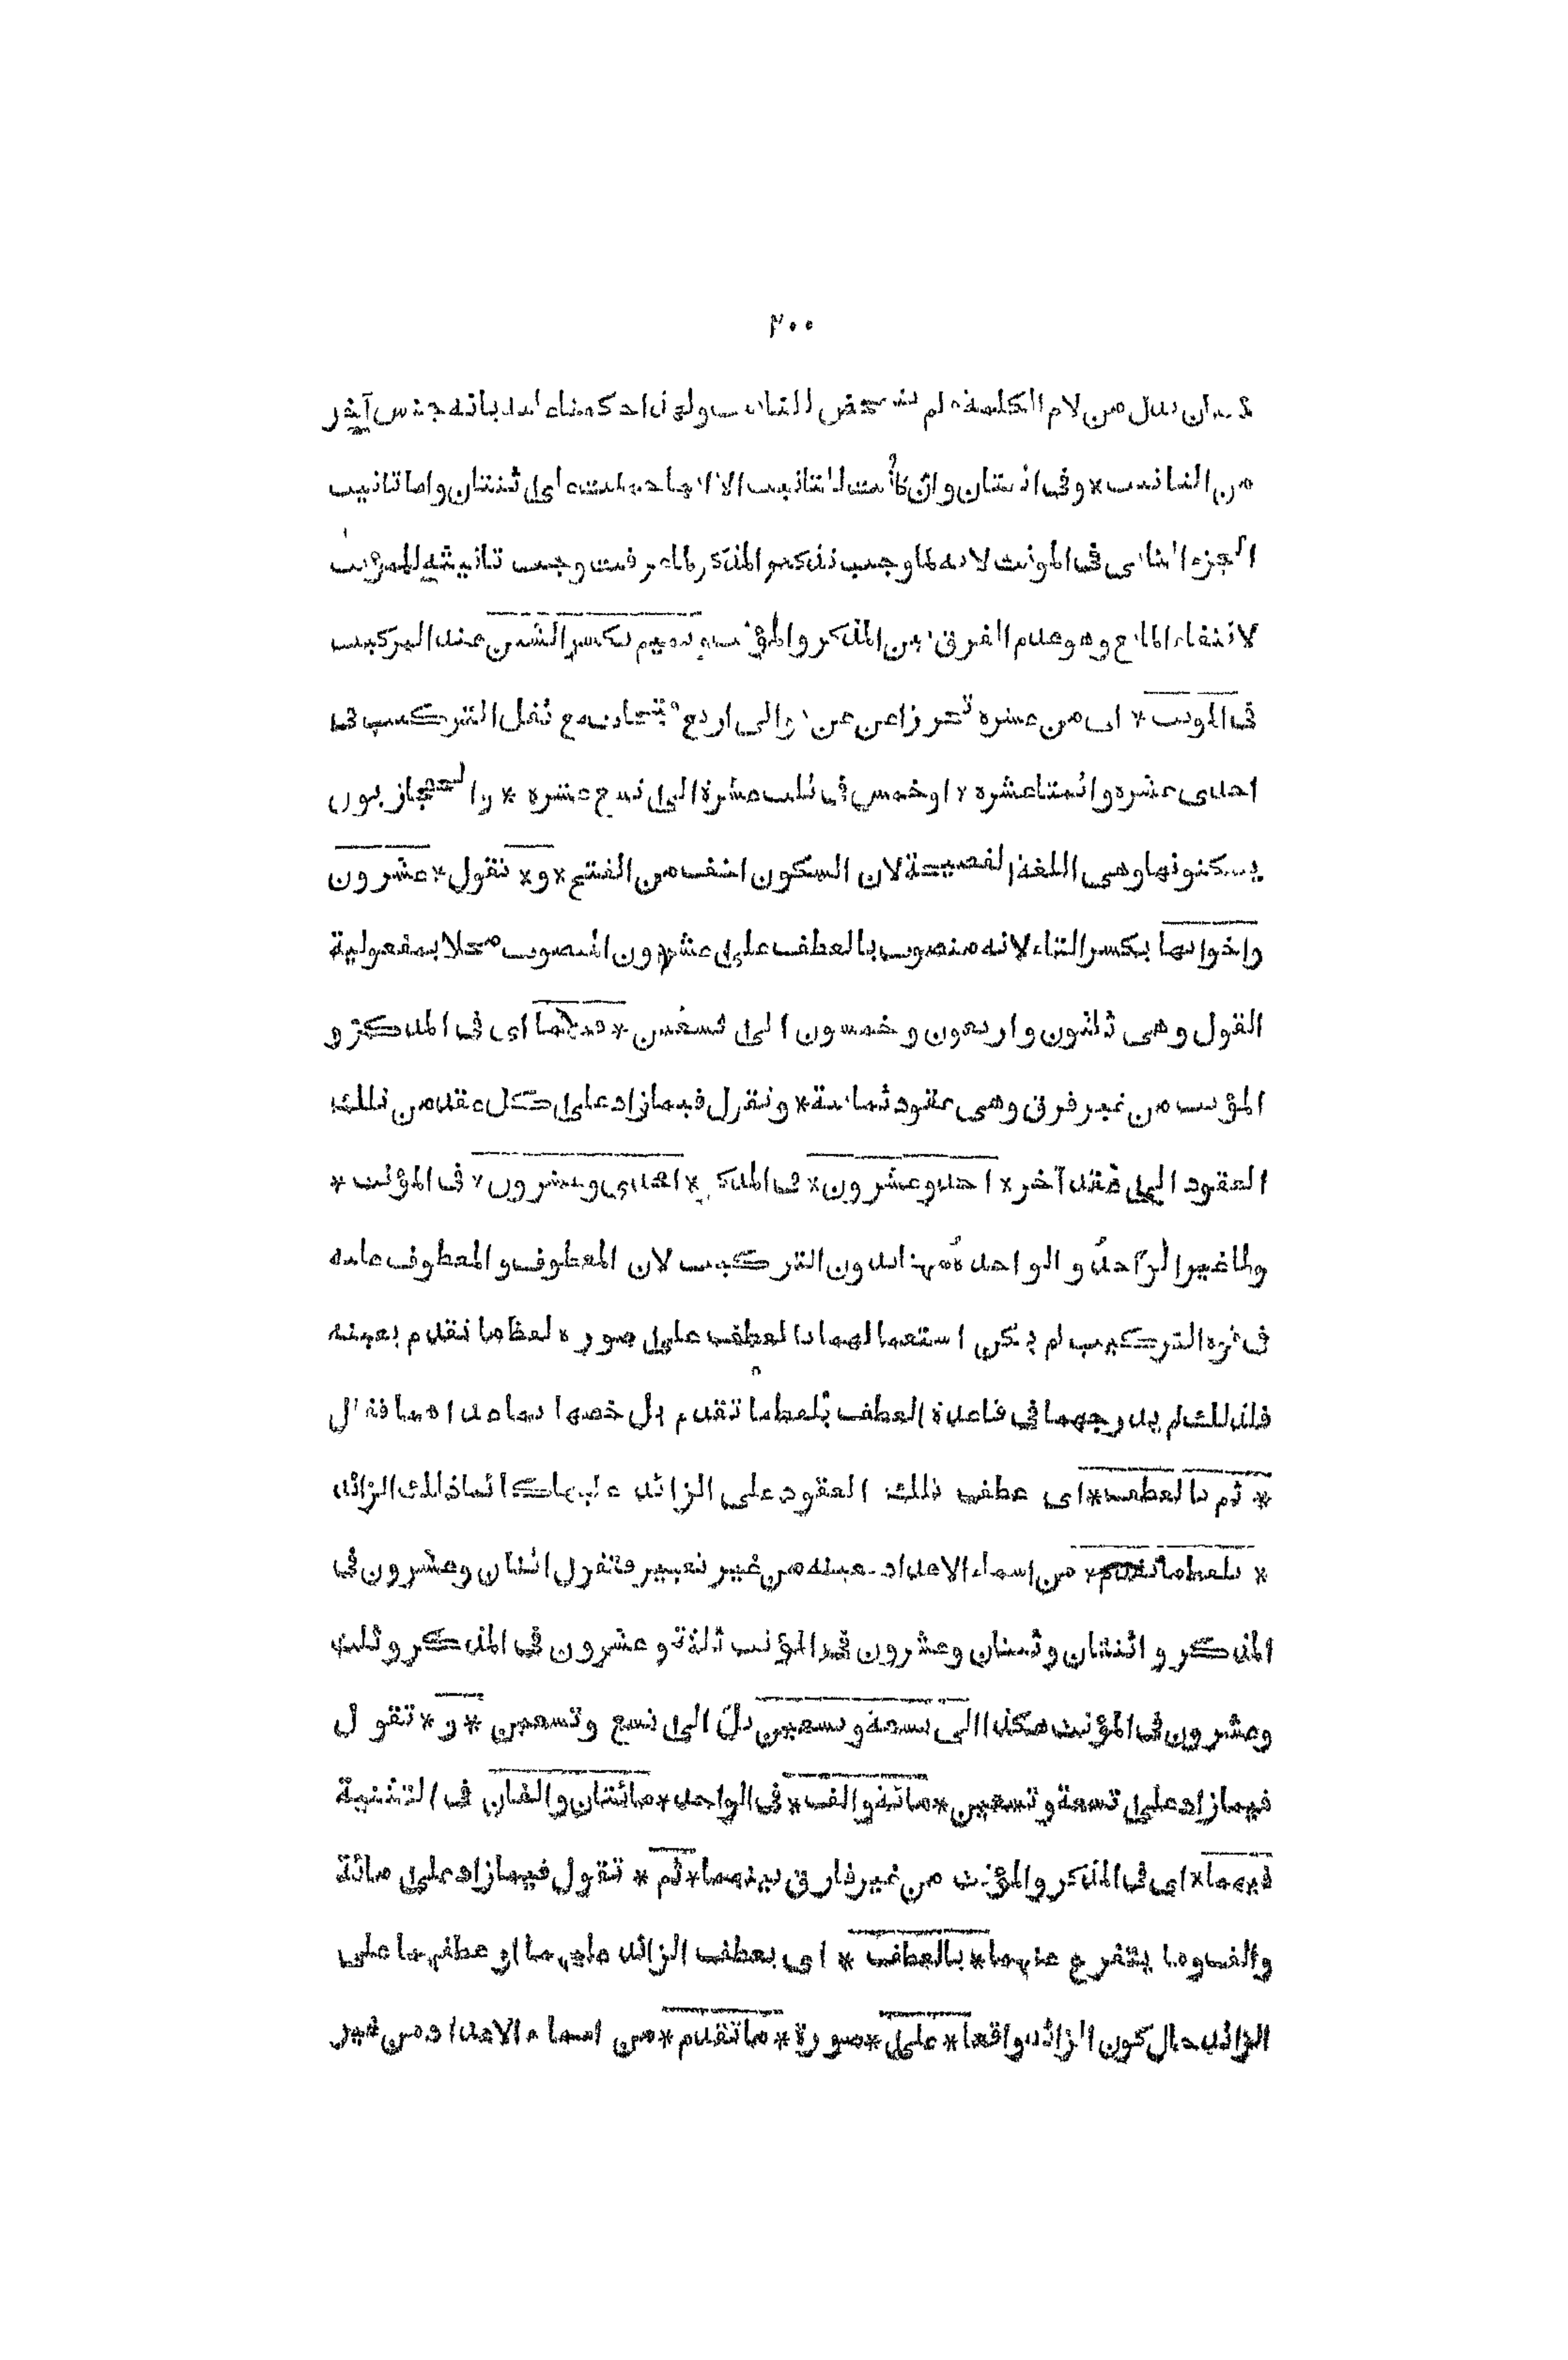 ٢٠٠
من لام الكلمة لم تتمحض للتانيث ولهذا جنس آخر
من التانيث * وفي اثنتان وان كانت للتانيث الا انها ثنتان واما تانيث
الجزء الثاني في المؤنث لانه لما وجب تذكير المذكر لما عرفت وجب تانيثه للمؤنث
لانتفاء المانع وهو عدم الفرق بين المذكر والمؤنث وتميم تكسر الشين عند التركيب
في المونث * اى من عشرة تحرزا عن توالى اربع فتحات مع ثقل التركيب في
احدى عشرة واثنتا عشرة * او خمس في ثلث عشرة الى تسع عشرة * والحجازيون
يسكنونها وهي اللغة الفصيحة لان السكون اخف من الفتح * و * تقول * عشرون
واخواتها بكسر التاء لانه منصوب بالعطف على عشرون المنصوب محلا بمفعولية
القول وهى ثلثون واربعون وخمسون الى تسعين * فيهما اى في المذكر و
المؤنث من غير فرق وهى عقود ثمانية * وتقول فيما زاد على كل عقد من تلك
العقود الى عقد آخر * احد وعشرون * في المذكر * احدى وعشرون * في المؤنث *
ولما غير الواحد والواحدة ههنا بدون التركيب لان المعطوف والمعطوف عليه
في قوة التركيب لم يكن استعمالهما بالعطف على صورة لفظ ما تقدم بعينه
فلذلك لم يدرجهما في قاعدة العطف بلفظ ما تقدم بل خصها بما عداهما فقال
* ثم بالعطف * اى عطف تلك العقود على الزائد عليها كائنا ذلك الزائد
* بلفظ ما تقدم * من اسماء الاعداد بعينه من غير تغيير فتقول اثنان وعشرون في
المذكر واثنتان وثنتان وعشرون في المؤنث ثلثة وعشرون في المذكر وثلث
وعشرون في المؤنث هكذا الى تسعة وتسعين بل الى تسع وتسعين * و * تقول
فيما زاد على تسعة وتسعين * مائة والف * في الواحد * مائتان والفان في التثنية
فيهما * اى في المذكر والمؤنث من غير فارق بينهما * ثم * تقول فيما زاد على مائة
والف وما يتفرع عنهما * بالعطف * اى بعطف الزائد عليهما او عطفهما على
الزائد حال كون الزائد واقعا * على * صورة * ما تقدم * من اسماء الاعداد من غير